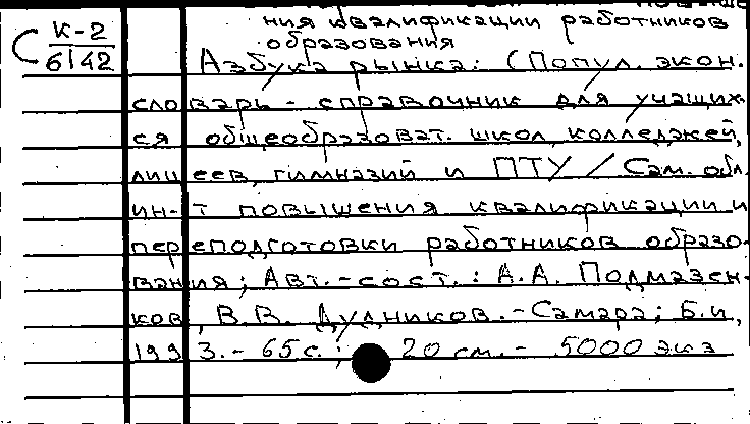 С К-2
6142
ния квалификации работников
образования
Азбука рынка: (Попул. экон.
словарь - справочник для учащих-
ся общеобразоват. школ, колледжей,
лицеев, гимназий и ПТУ / Сам. обл.
ин-т повышения квалификации и
переподготовки работников образо-
вания; Авт.-сост.: А.А. Подмазен-
ков, В.В. Дудников. - Самара; Б.и,
1993. - 65 с.; 20 см. - 5000 экз